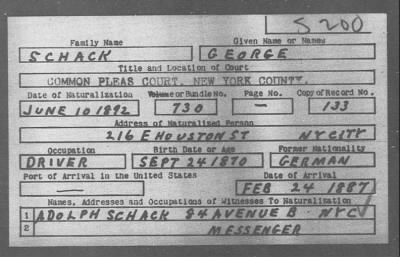 S 200
Family Name Given Name or Names
SCHACK GEORGE
Title and Location of Court
COMMON PLEAS COURT, NEW YORK COUNTY.
Date of Naturalization Volume or Bundle No. Page No. Copy of Record No.
JUNE 10 1892 730 — 133
Address of Naturalized Person
216 E HOUSTON ST NY CITY
Occupation Birth Date or Age Former Nationality
DRIVER SEPT 24 1870 GERMAN
Port of Arrival in the United States Date of Arrival
— FEB 24 1887
Names, Addresses and Occupations of Witnesses To Naturalization
1 ADOLPH SCHACK 84 AVENUE B NYC
2 MESSENGER